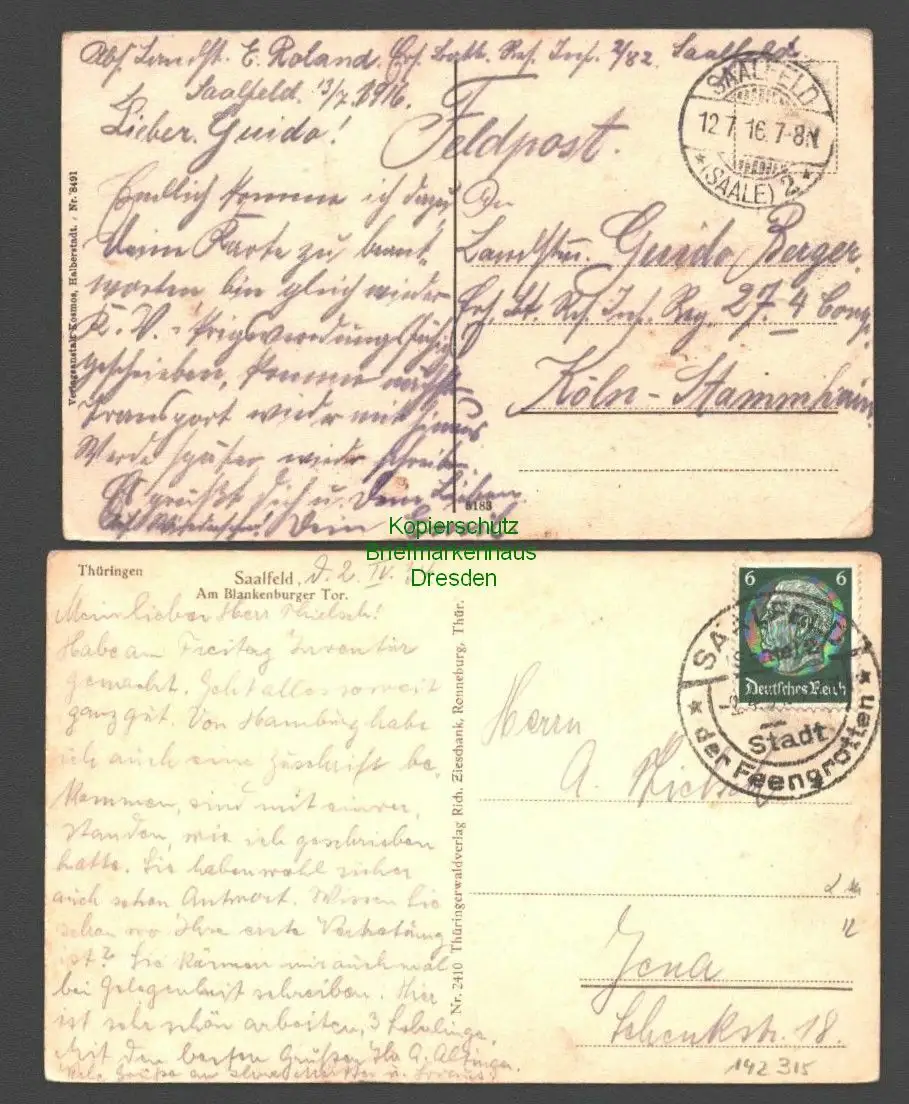 Abs. Landst. E. Roland. Ers. Batt. Res. Inf. 2/82 Saalfeld.
Saalfeld. 13/7. 1916.
Lieber Guido!
Endlich komme ich dazu
Deine Karte zu beant-
worten bin gleich wieder
K. V. :
geschrieben, komme
Transport wieder mit hinaus
Werde später wieder schreiben.
Es grüßt Dich u.
Dein
Verlagsanstalt Kosmos, Halberstadt. Nr. 8491
8183
Feldpost.
SAALFELD
12.7.16.7-8N.
* (SAALE) 2 *
An
Landstm. Guido Berger.
Ers. Bt. Res. Inf. Reg. 27. 4 Comp.
Köln-Stammheim
Kopierschutz
Briefmarkenhaus
Dresden
Thüringen
Saalfeld, d. 2. IV.
Am Blankenburger Tor.
Mein lieber Herr
Habe am Freitag Inventur
gemacht. Geht alles soweit
ganz gut. Von Hamburg habe
ich auch eine Zuschrift be-
kommen, sind mit einver-
standen, wie ich geschrieben
hatte. Sie haben wohl sicher
auch schon Antwort. Wissen Sie
schon wo Ihre erste Vertretung
ist? Sie können mir auch mal
bei Gelegenheit schreiben. Hier
ist sehr schön arbeiten, 3 Lehrlinge.
Mit den besten Grüßen Ihr A.
Viele Grüße an
Nr. 2410 Thüringerwaldverlag Rich. Zieschank, Ronneburg, Thür.
6 6
Deutsches Reich
SAALFELD
Stadt
* der Feengrotten *
Herrn
A.
Jena
Schenkstr. 18.
12
142 315